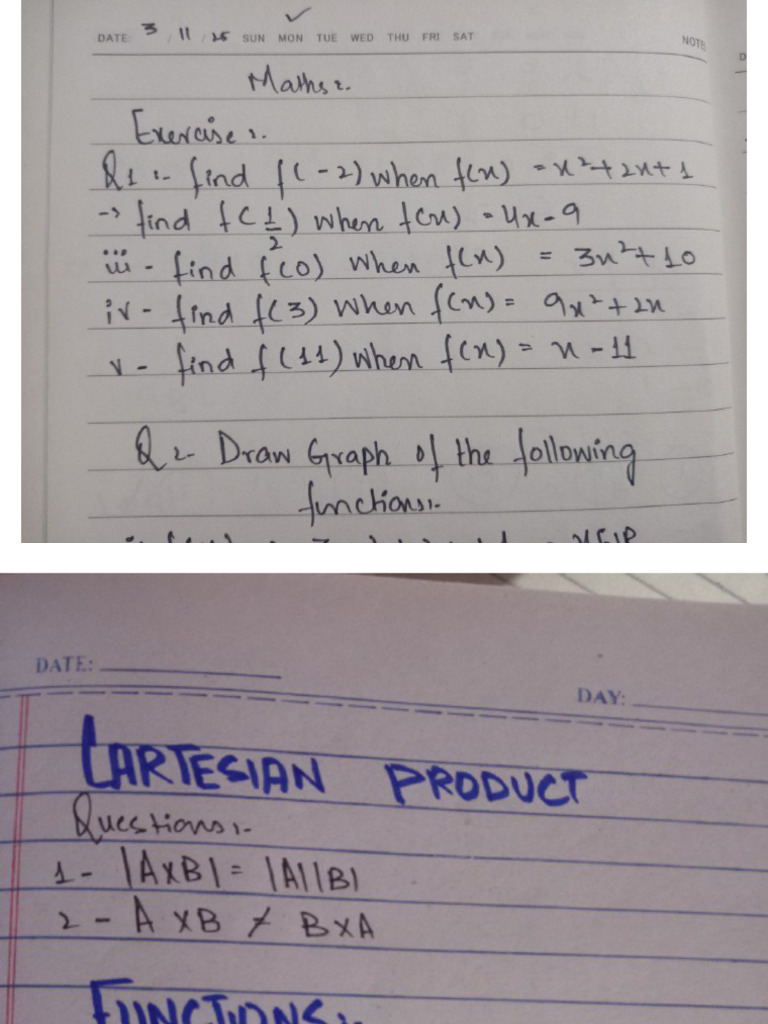 DATE: 3 / 11 / 25 SUN MON TUE WED THU FRI SAT
NOTE
Maths:.
Exercise:.
Q1:- find f(-2) when f(x) = x²+2x+1
-> find f(1/2) when f(x) = 4x-9
iii - find f(0) when f(x) = 3x²+10
iv - find f(3) when f(x) = 9x²+2x
v - find f(11) when f(x) = x-11
Q2- Draw Graph of the following
functions:-
DATE:
DAY:
CARTESIAN PRODUCT
Questions:-
1- |AxB| = |A||B|
2- A xB ≠ BxA
FUNCTIONS:-